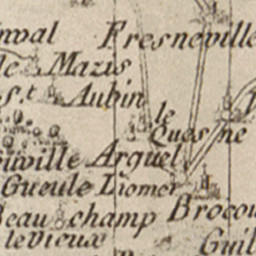 nval Fresneville
le Mazis
S.t Aubin
le
Quesne
uville Arguel
Gueule Liomer
Beauchamp Brocou
le Vieux
Guil